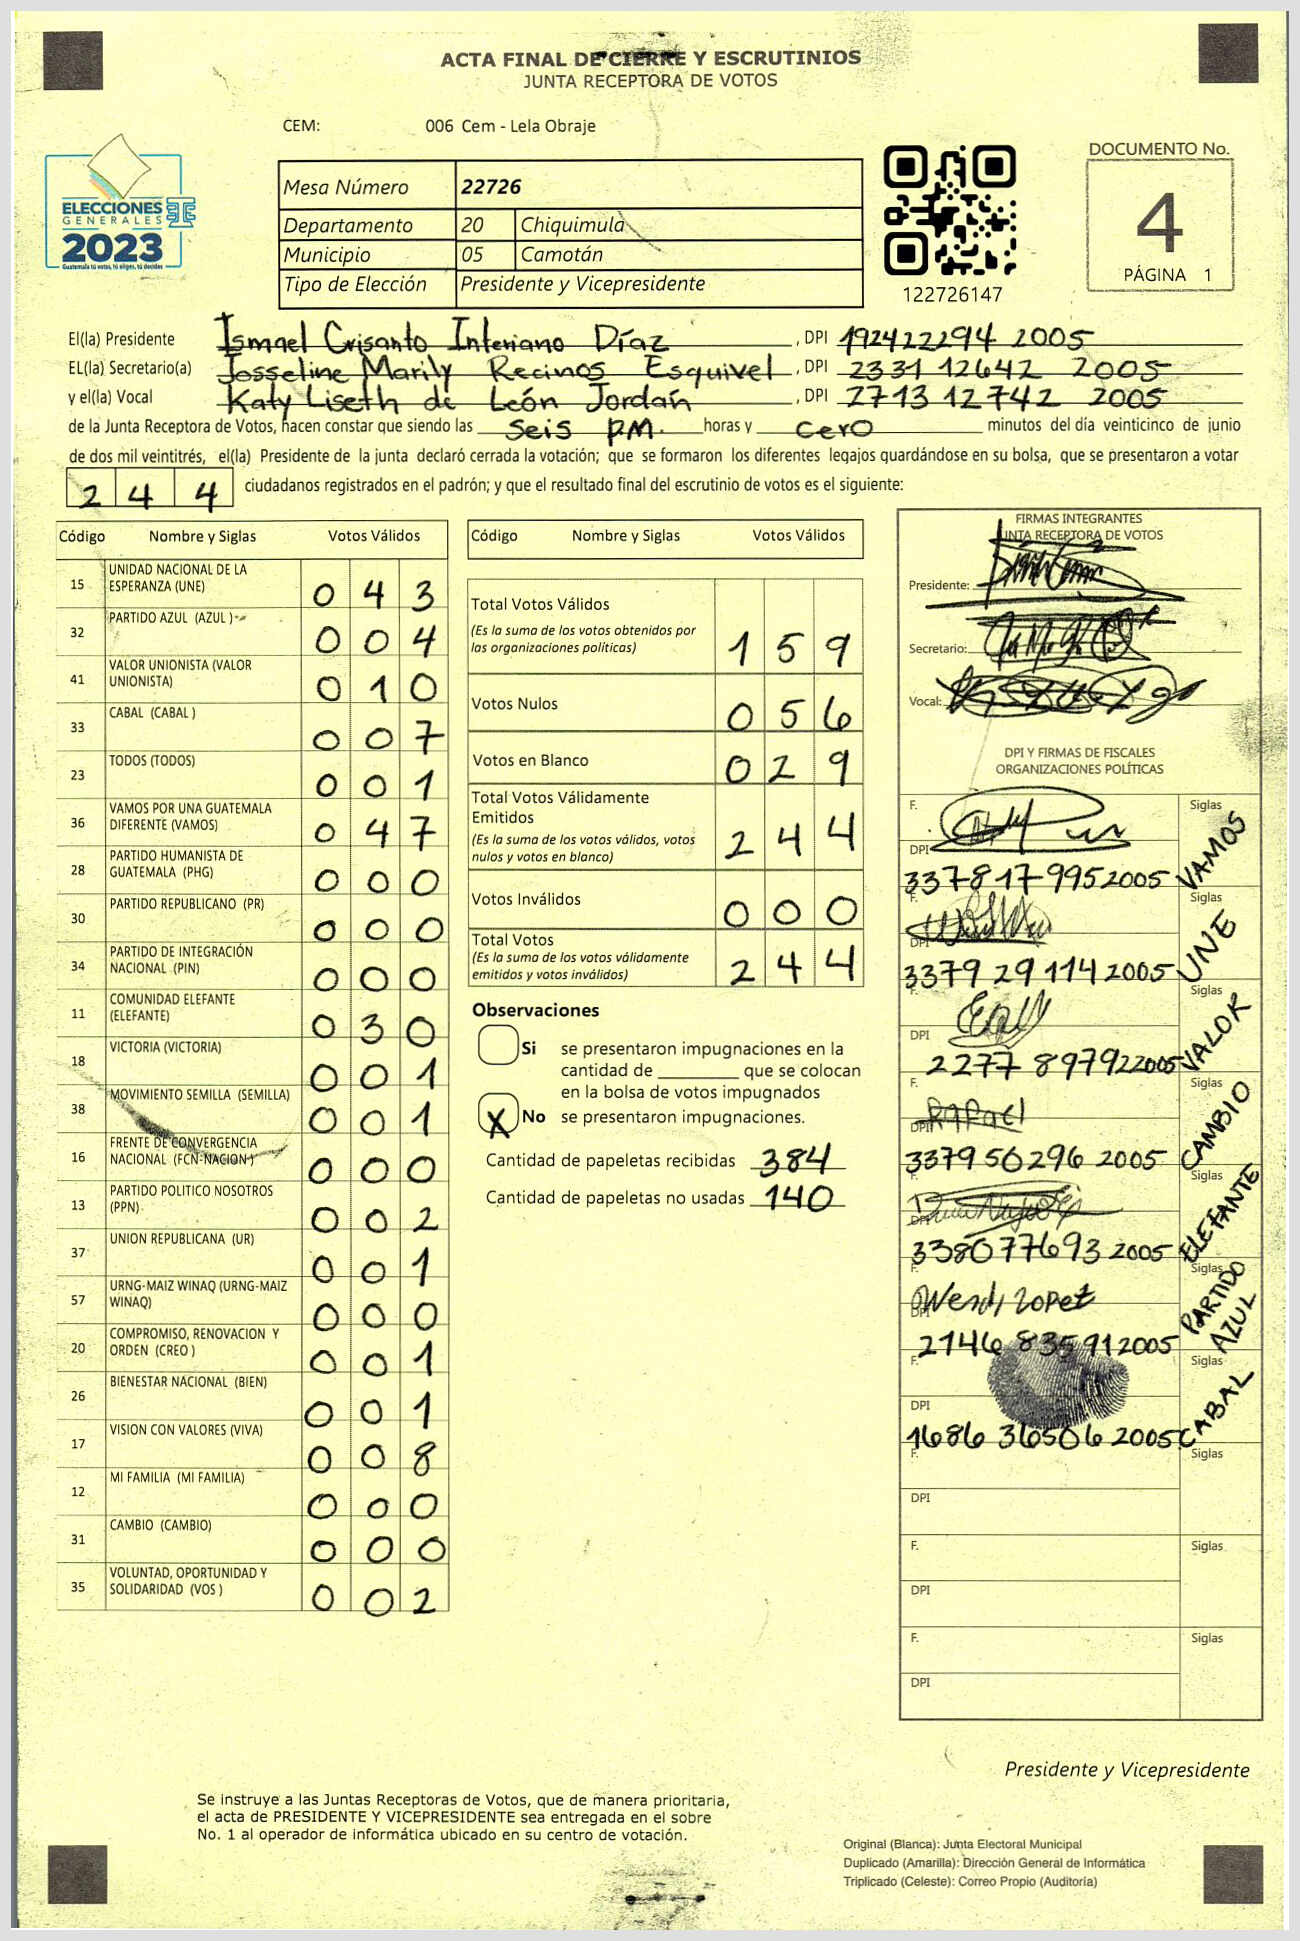 ACTA FINAL DE CIERRE Y ESCRUTINIOS
JUNTA RECEPTORA DE VOTOS
CEM: 006 Cem - Lela Obraje
DOCUMENTO No.
4
PÁGINA 1
ELECCIONES
GENERALES
2023
Guatemala tú votas, tú eliges, tú decides
Mesa Número 22726
Departamento 20 Chiquimula
Municipio 05 Camotán
Tipo de Elección Presidente y Vicepresidente
122726147
El(la) Presidente Ismael Crisanto Interiano Díaz, DPI 192422294 2005
EL(la) Secretario(a) Josseline Marily Recinos Esquivel, DPI 2331 12642 2005
y el(la) Vocal Katy Liseth de León Jordán, DPI 2713 12742 2005
de la Junta Receptora de Votos, hacen constar que siendo las seis p.m. horas y cero minutos del día veinticinco de junio
de dos mil veintitrés, el(la) Presidente de la junta declaró cerrada la votación; que se formaron los diferentes legajos guardándose en su bolsa, que se presentaron a votar
2 4 4 ciudadanos registrados en el padrón; y que el resultado final del escrutinio de votos es el siguiente:
Código Nombre y Siglas Votos Válidos
15 UNIDAD NACIONAL DE LA
ESPERANZA (UNE) 0 4 3
32 PARTIDO AZUL (AZUL ) 0 0 4
41 VALOR UNIONISTA (VALOR
UNIONISTA) 0 1 0
33 CABAL (CABAL ) 0 0 7
23 TODOS (TODOS) 0 0 1
36 VAMOS POR UNA GUATEMALA
DIFERENTE (VAMOS) 0 4 7
28 PARTIDO HUMANISTA DE
GUATEMALA (PHG) 0 0 0
30 PARTIDO REPUBLICANO (PR) 0 0 0
34 PARTIDO DE INTEGRACIÓN
NACIONAL (PIN) 0 0 0
11 COMUNIDAD ELEFANTE
(ELEFANTE) 0 3 0
18 VICTORIA (VICTORIA) 0 0 1
38 MOVIMIENTO SEMILLA (SEMILLA) 0 0 1
16 FRENTE DE CONVERGENCIA
NACIONAL (FCN-NACION ) 0 0 0
13 PARTIDO POLITICO NOSOTROS
(PPN) 0 0 2
37 UNION REPUBLICANA (UR) 0 0 1
57 URNG-MAIZ WINAQ (URNG-MAIZ
WINAQ) 0 0 0
20 COMPROMISO, RENOVACION Y
ORDEN (CREO ) 0 0 1
26 BIENESTAR NACIONAL (BIEN) 0 0 1
17 VISION CON VALORES (VIVA) 0 0 8
12 MI FAMILIA (MI FAMILIA) 0 0 0
31 CAMBIO (CAMBIO) 0 0 0
35 VOLUNTAD, OPORTUNIDAD Y
SOLIDARIDAD (VOS ) 0 0 2
Código Nombre y Siglas Votos Válidos
Total Votos Válidos
(Es la suma de los votos obtenidos por
las organizaciones políticas) 1 5 9
Votos Nulos 0 5 6
Votos en Blanco 0 2 9
Total Votos Válidamente
Emitidos
(Es la suma de los votos válidos, votos
nulos y votos en blanco) 2 4 4
Votos Inválidos 0 0 0
Total Votos
(Es la suma de los votos válidamente
emitidos y votos inválidos) 2 4 4
Observaciones
Si se presentaron impugnaciones en la
cantidad de ________ que se colocan
en la bolsa de votos impugnados
X No se presentaron impugnaciones.
Cantidad de papeletas recibidas 384
Cantidad de papeletas no usadas 140
FIRMAS INTEGRANTES
JUNTA RECEPTORA DE VOTOS
Presidente:
Secretario:
Vocal:
DPI Y FIRMAS DE FISCALES
ORGANIZACIONES POLÍTICAS
F. Siglas VAMOS
DPI 337817995 2005
F. Siglas UNE
DPI 3379 29 114 2005
F. Siglas VALOR
DPI 2277 897922005
F. Rafael Siglas CAMBIO
DPI 337950296 2005
F. Siglas ELEFANTE
DPI 338077693 2005
F. Wendi Lopez Siglas PARTIDO AZUL
DPI 2146 835912005
F. Siglas CABAL
DPI 1686 36506 2005
F. Siglas
DPI
F. Siglas
DPI
F. Siglas
DPI
Presidente y Vicepresidente
Se instruye a las Juntas Receptoras de Votos, que de manera prioritaria,
el acta de PRESIDENTE Y VICEPRESIDENTE sea entregada en el sobre
No. 1 al operador de informática ubicado en su centro de votación.
Original (Blanca): Junta Electoral Municipal
Duplicado (Amarilla): Dirección General de Informática
Triplicado (Celeste): Correo Propio (Auditoría)